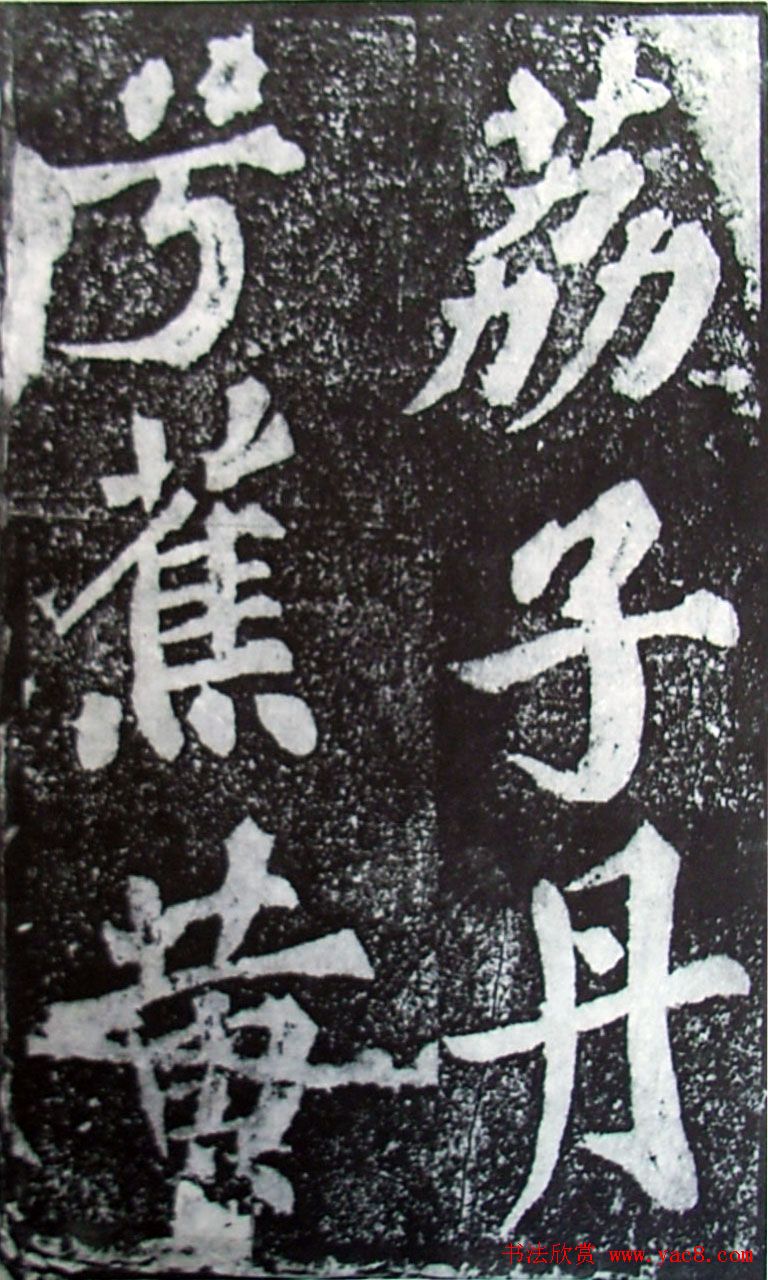 荔子丹
兮蕉黄
书法欣赏 www.yac8.com